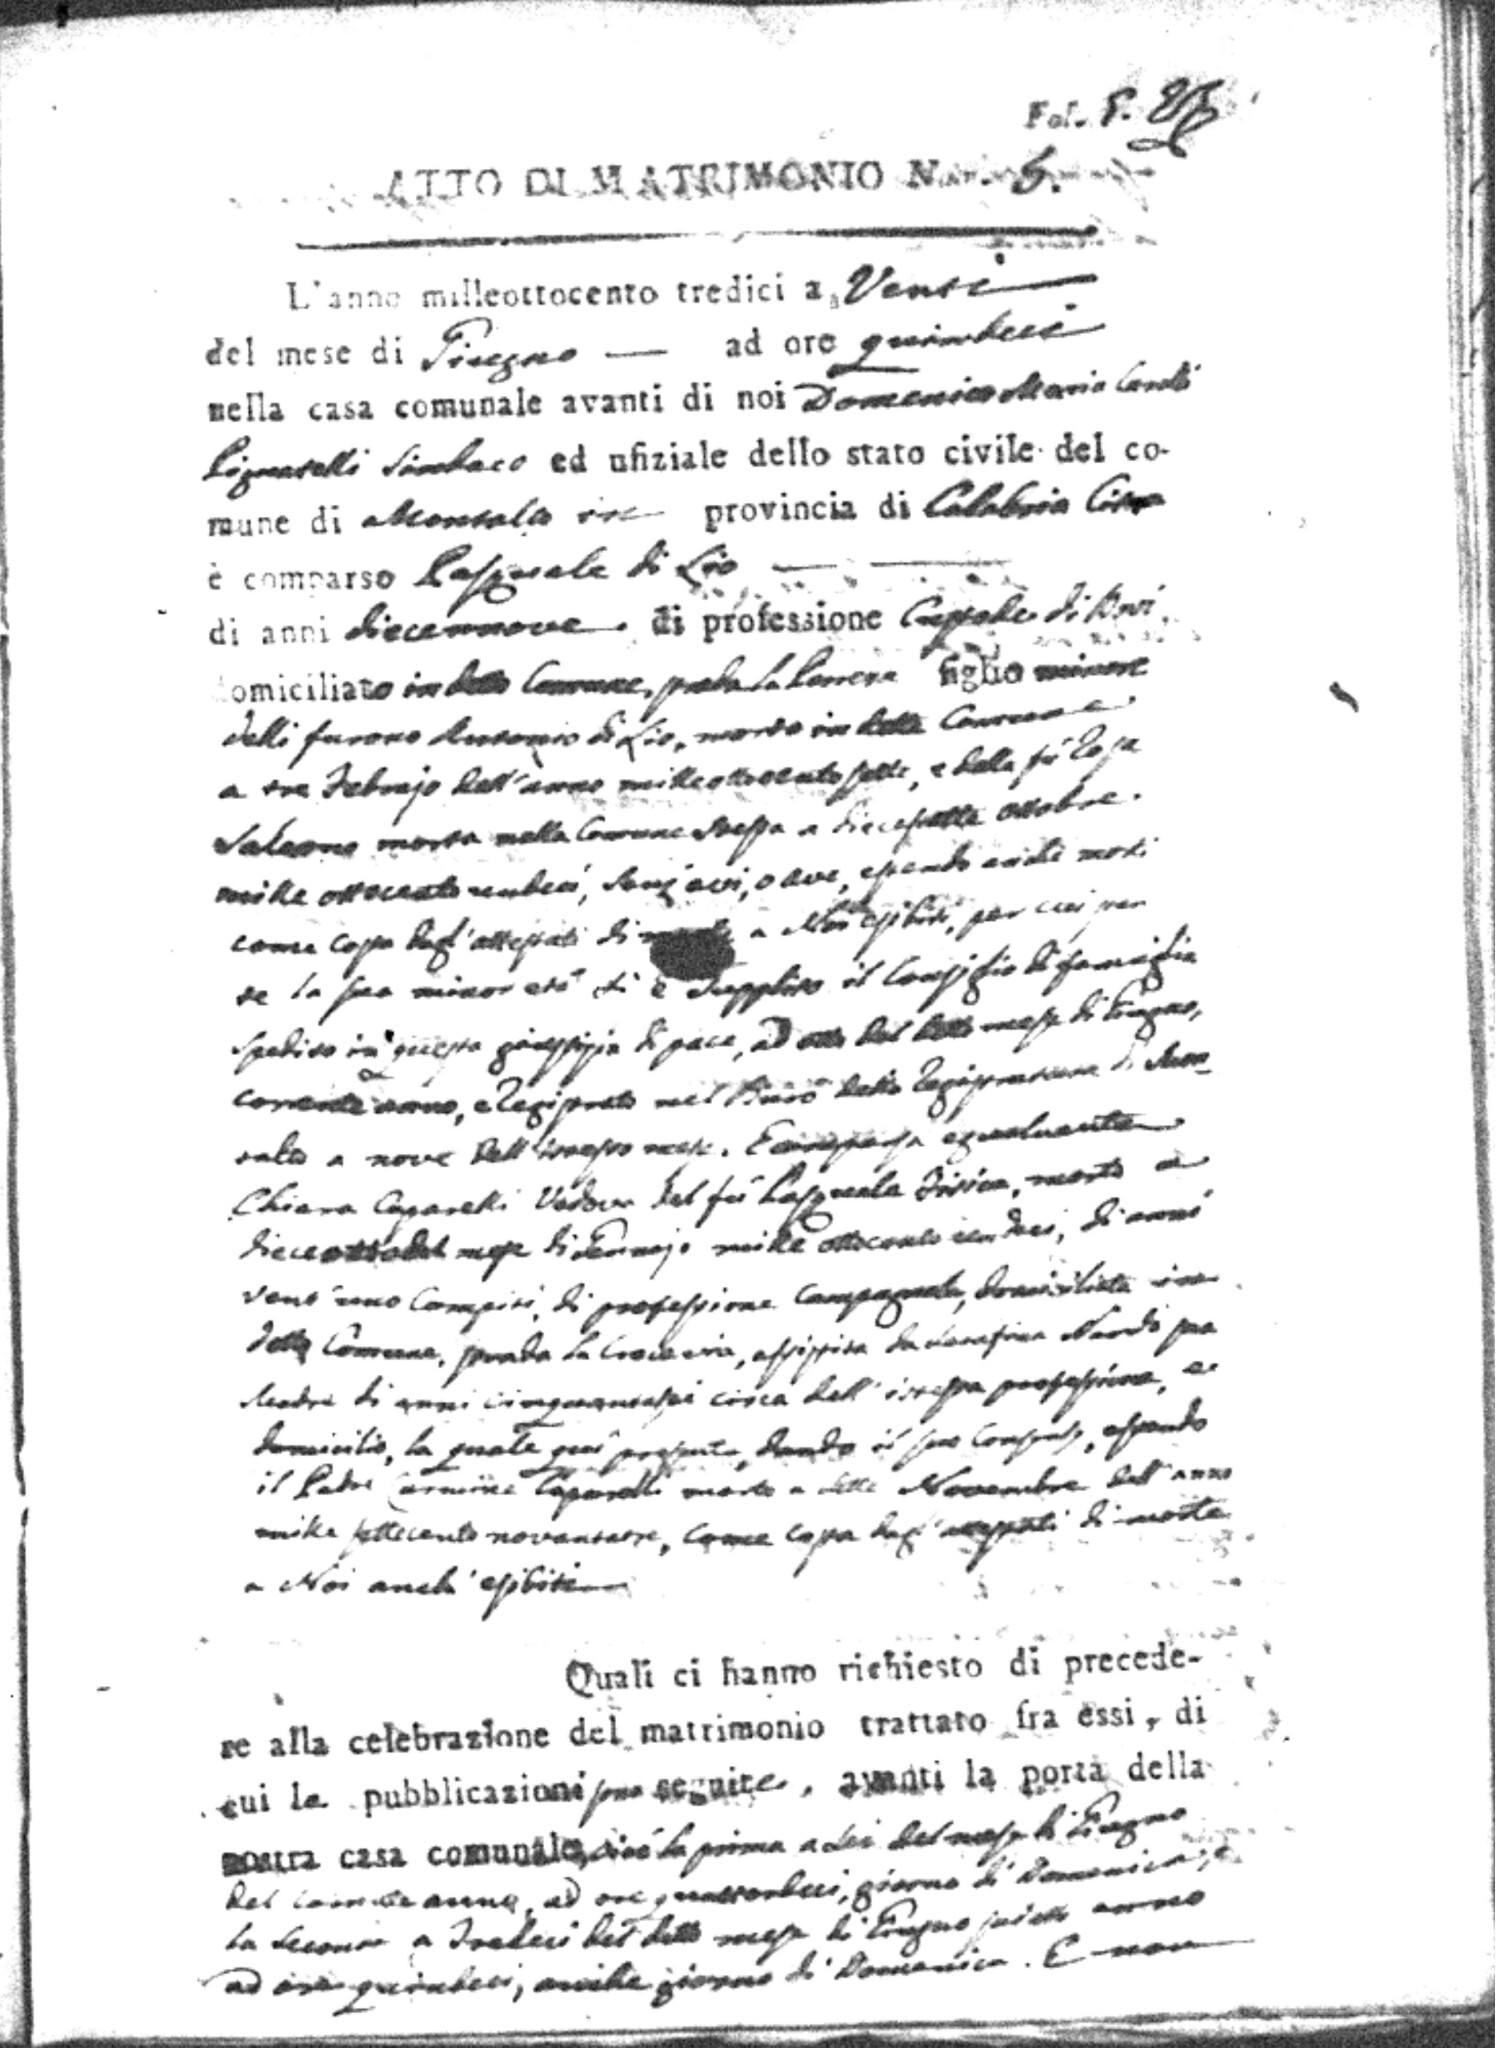 Fol. 8.
ATTO DI MATRIMONIO Num. 5.
L'anno milleottocento tredici a Venti
del mese di Giugno — ad ore quindeci
nella casa comunale avanti di noi Domenico Maria
Pignatelli Sindaco ed ufiziale dello stato civile del co-
mune di Montalto provincia di Calabria Citra
è comparso Pasquale di Lio
di anni diecennove di professione Custode di Bovi
domiciliato in detto Comune, strada la Porrera figlio minore
delli furono Antonio di Lio, morto in detta Comune
a tre Febrajo dell'anno mille ottocento sette, e della fù Rosa
Salerno morta nella Comune stessa a diecesette ottobre
mille ottocento undeci, senz'avi, o ave, essendo anche morti
come costa dagl'attestati di a Noi esibiti, per cui per
te la sua minor età si è supplito il Consiglio di famiglia
spedito in questa giustizia di pace, ad otto del detto mese di Giugno,
corrente anno, e Registrato nel Burò della Registratura di Mon-
talto a nove dell'istesso mese. E comparsa egualmente
Chiara Caparelli Vedova del fù Pasquale morto a
dieceotto del mese di Gennajo mille ottocento undeci, di anni
vent'uno compiti, di professione Campagnola, domiciliata in
detto Comune, strada la Crocevia, assistita da Serafina Nardi sua
Madre di anni cinquantasei circa dell'istessa professione, e
domicilio, la quale quì presente, dando il suo Consenso, essendo
il Padre Carmine Caparelli morto a sette Novembre dell'anno
mille settecento novantatre, come costa dagl'attestati di morte
a Noi anch'esibiti
Quali ci hanno richiesto di precede-
re alla celebrazione del matrimonio trattato fra essi, di
cui le pubblicazioni sono seguite, avanti la porta della
nostra casa comunale, cioè la prima a sei del mese di Giugno
del corrente anno, ad ore quattordeci, giorno di Domenica, e
la seconda a Tredeci del detto mese di Giugno anno
ad ore quindeci, anche giorno di Domenica. E non